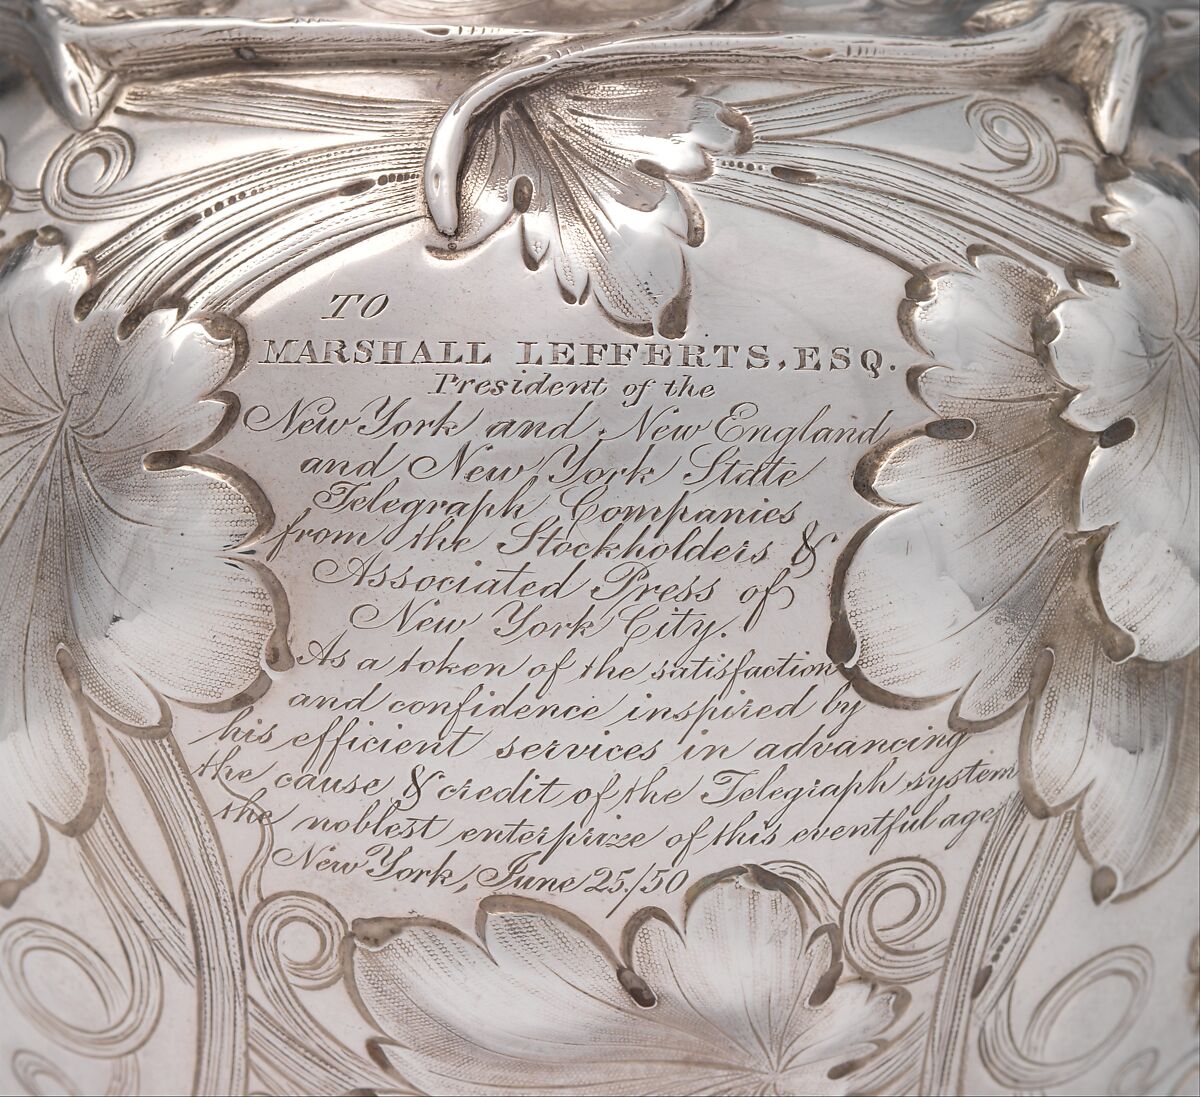 TO
MARSHALL LEFFERTS, ESQ.
President of the
New York and New England
and New York State
Telegraph Companies
from the Stockholders &
Associated Press of
New York City.
As a token of the satisfaction
and confidence inspired by
his efficient services in advancing
the cause & credit of the Telegraph system
the noblest enterprize of this eventful age
New York, June 25./50